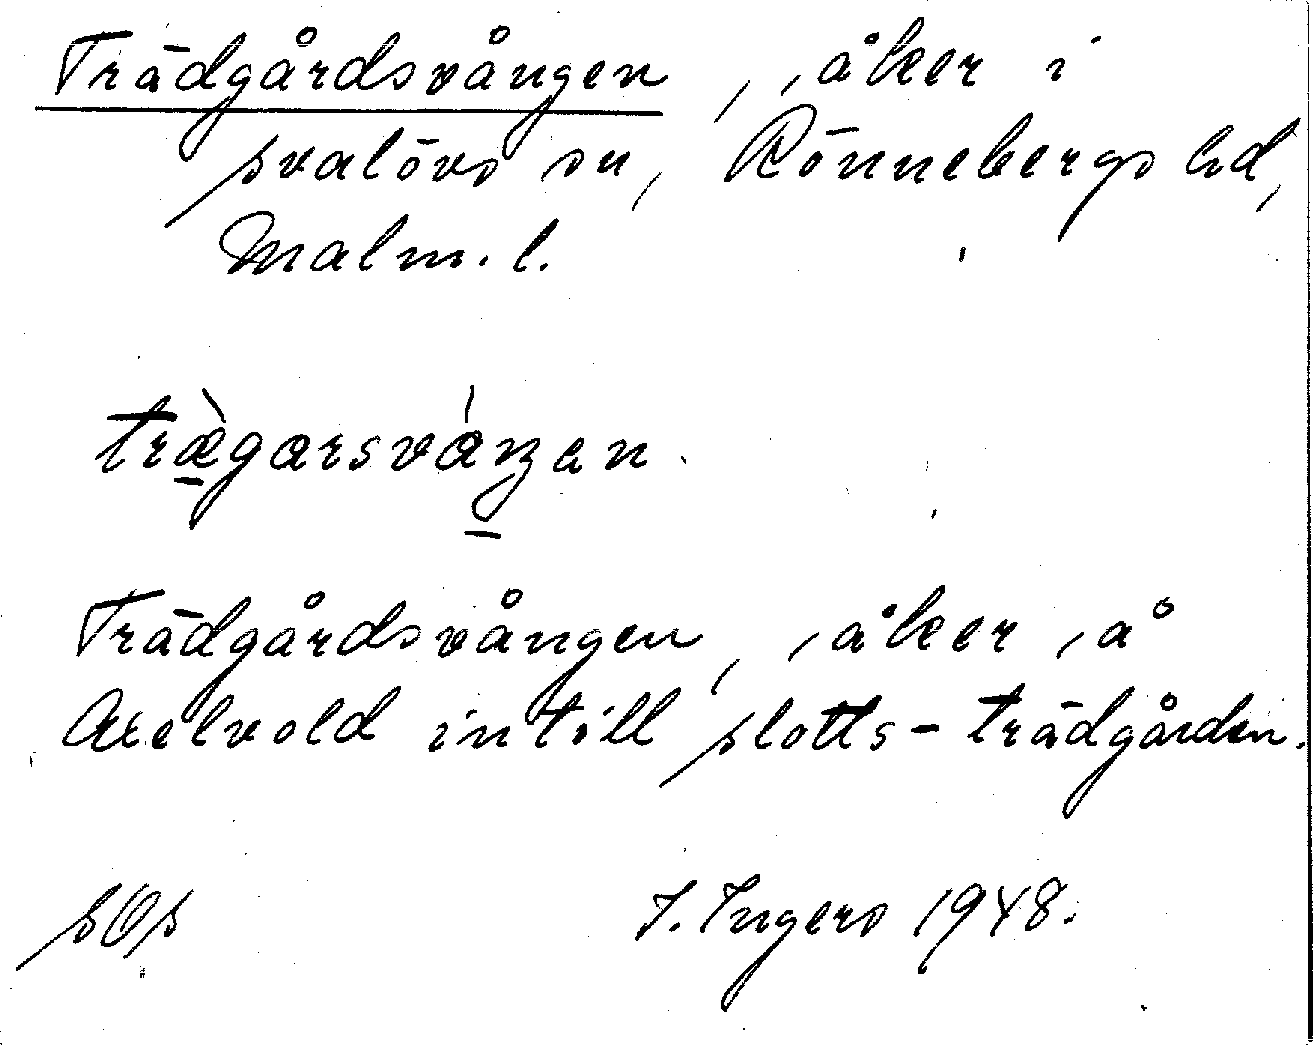 Trädgårdsvången, åker i
Svalövs sn, Rönnebergs hd,
Malm. l.
træ̀garsváŋan
Trädgårdsvången, åker å
Axelvold intill slotts-trädgården.
SOS I. Ingers 1948.